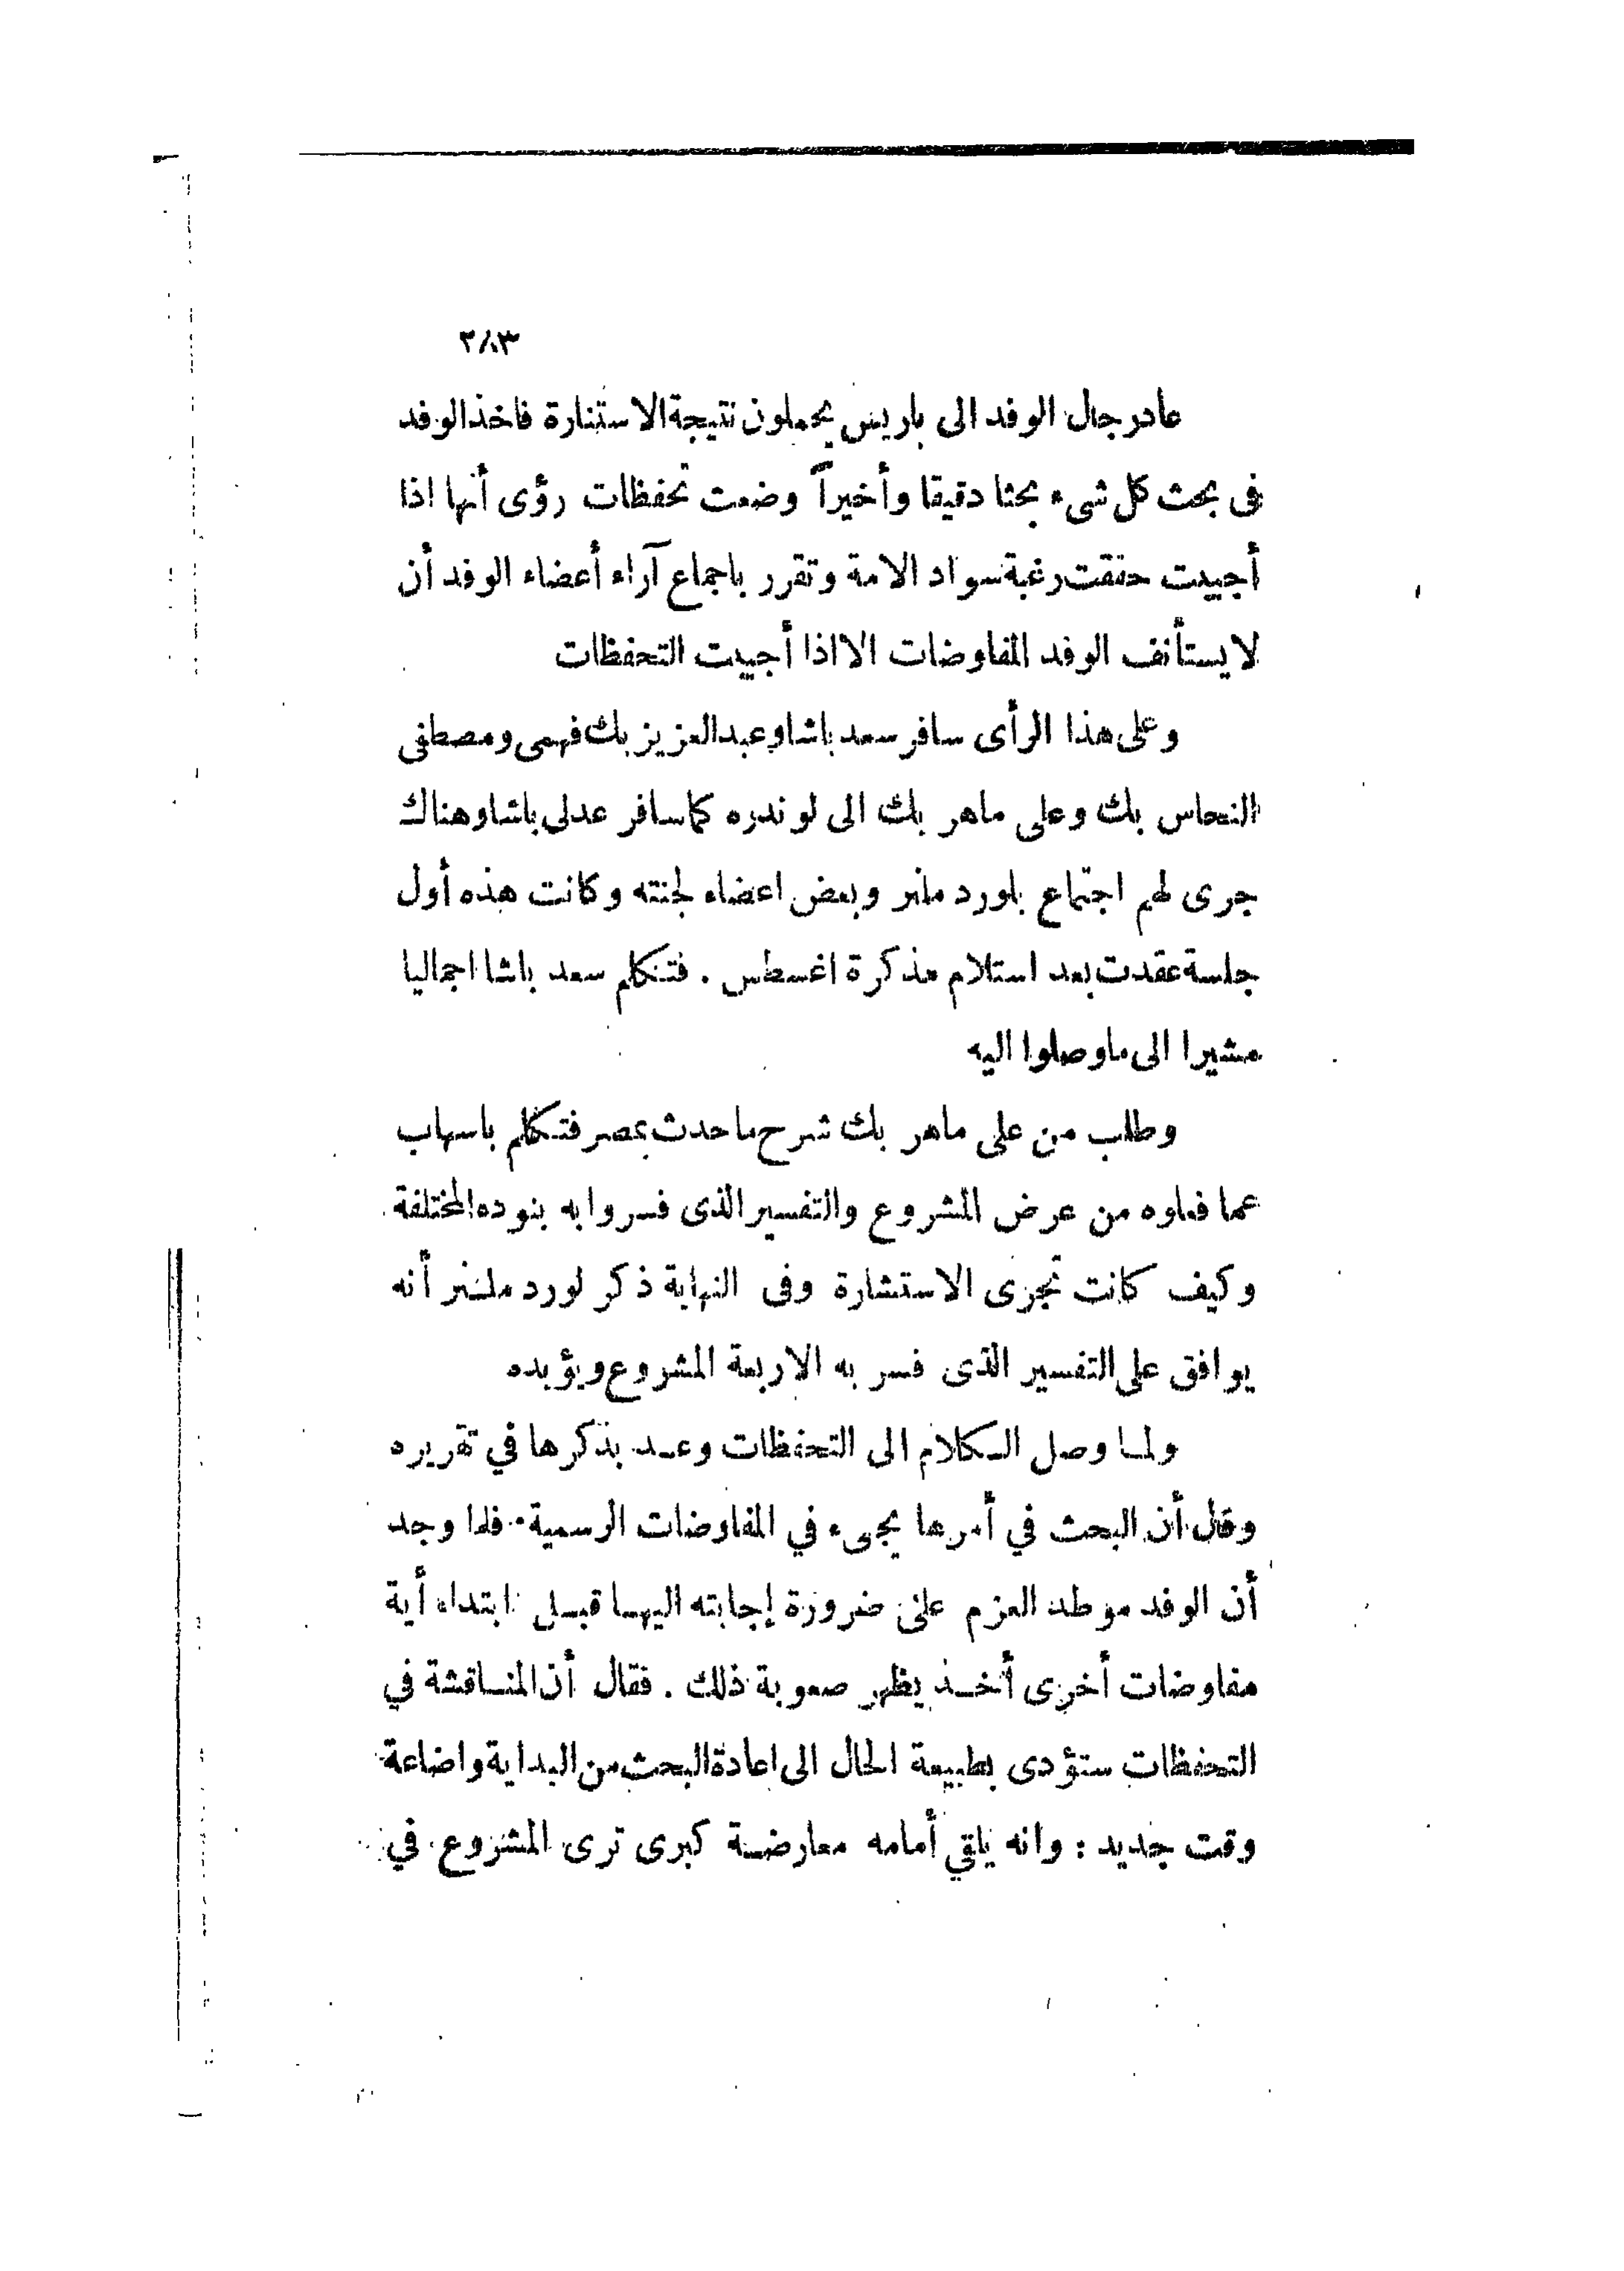 ٢٨٣
عاد رجال الوفد الى باريس يحملون نتيجة الاستنارة فاخذ الوفد
فى بحث كل شىء بحثا دقيقا وأخيراً وضعت تحفظات رؤى أنها اذا
أجيبت حققت رغبة سواد الامة وتقرر باجماع آراء أعضاء الوفد أن
لا يستأنف الوفد المفاوضات الا اذا أجيبت التحفظات
وعلى هذا الرأى سافر سعد باشا وعبد العزيز بك فهمى ومصطفى
النحاس بك وعلى ماهر بك الى لوندره كما سافر عدلى باشا وهناك
جرى لهم اجتماع بلورد ملنر وبعض اعضاء لجنته وكانت هذه أول
جلسة عقدت بعد استلام مذكرة اغسطس . فتكلم سعد باشا اجماليا
مشيرا الى ما وصلوا اليه
وطلب من على ماهر بك شرح ما حدث بمصر فتكلم باسهاب
عما فعلوه من عرض المشروع والتفسير الذى فسروا به بنوده المختلفة
وكيف كانت تجرى الاستشارة وفى النهاية ذكر لورد ملنر أنه
يوافق على التفسير الذى فسر به الاربعة المشروع ويؤيده
ولما وصل الكلام الى التحفظات وعد بذكرها في تقريره
وقال أن البحث في أمرها يجىء في المفاوضات الرسمية . فلما وجد
أن الوفد موطد العزم على ضرورة إجابته اليها قبل ابتداء أية
مفاوضات أخرى أخذ يظهر صعوبة ذلك . فقال أن المناقشة في
التحفظات ستؤدى بطبيعة الحال الى اعادة البحث من البداية واضاعة
وقت جديد : وانه يلقي أمامه معارضة كبرى ترى المشروع في